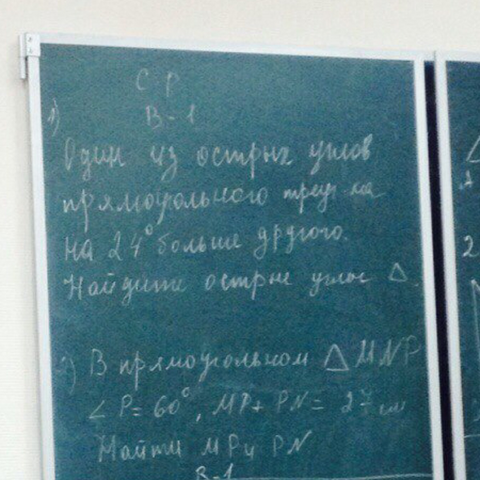 С Р
В-1
1)
Один из острых углов
прямоугольного треуг-ка
на 24° больше другого.
Найдите острые углы Δ.
2) В прямоугольном Δ MNP
∠ P = 60°, MP + PN = 27 см
Найти MP и PN
В-1
2